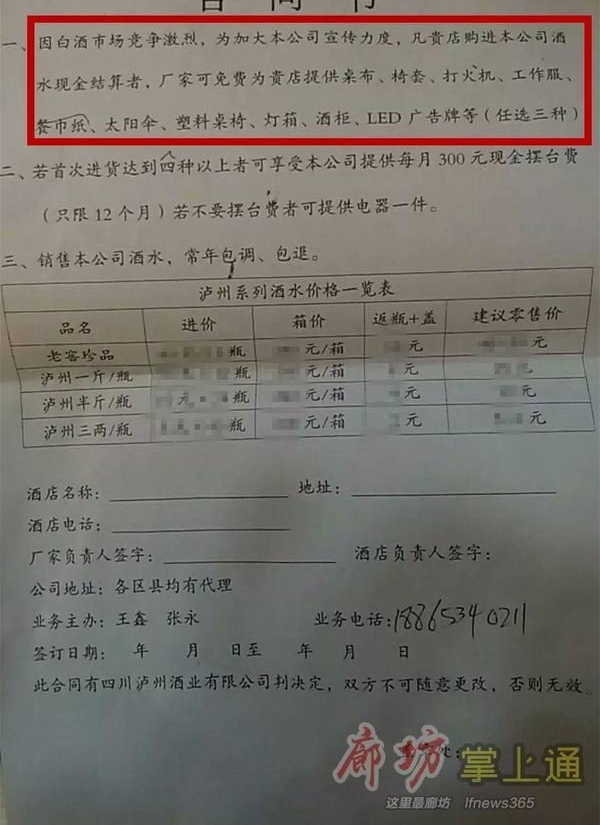 合同书
一、因白酒市场竞争激烈，为加大本公司宣传力度，凡贵店购进本公司酒
水现金结算者，厂家可免费为贵店提供桌布、椅套、打火机、工作服、
餐巾纸、太阳伞、塑料桌椅、灯箱、酒柜、LED 广告牌等（任选三种）
二、若首次进货达到四种以上者可享受本公司提供每月 300 元现金摆台费
（只限 12 个月）若不要摆台费者可提供电器一件。
三、销售本公司酒水，常年包调、包退。
泸州系列酒水价格一览表
品名 进价 箱价 返瓶+盖 建议零售价
老窖珍品 瓶 元/箱 元 元
泸州一斤/瓶 瓶 元/箱 元 元
泸州半斤/瓶 元 瓶 元/箱 元 元
泸州三两/瓶 瓶 元/箱 元 元
酒店名称： 地址：
酒店电话：
厂家负责人签字： 酒店负责人签字：
公司地址：各区县均有代理
业务主办：王鑫 张永 业务电话：18865340211
签订日期： 年 月 日至 年 月 日
此合同有四川泸州酒业有限公司判决定，双方不可随意更改，否则无效。
处：
廊坊掌上通
这里最廊坊 lfnews365